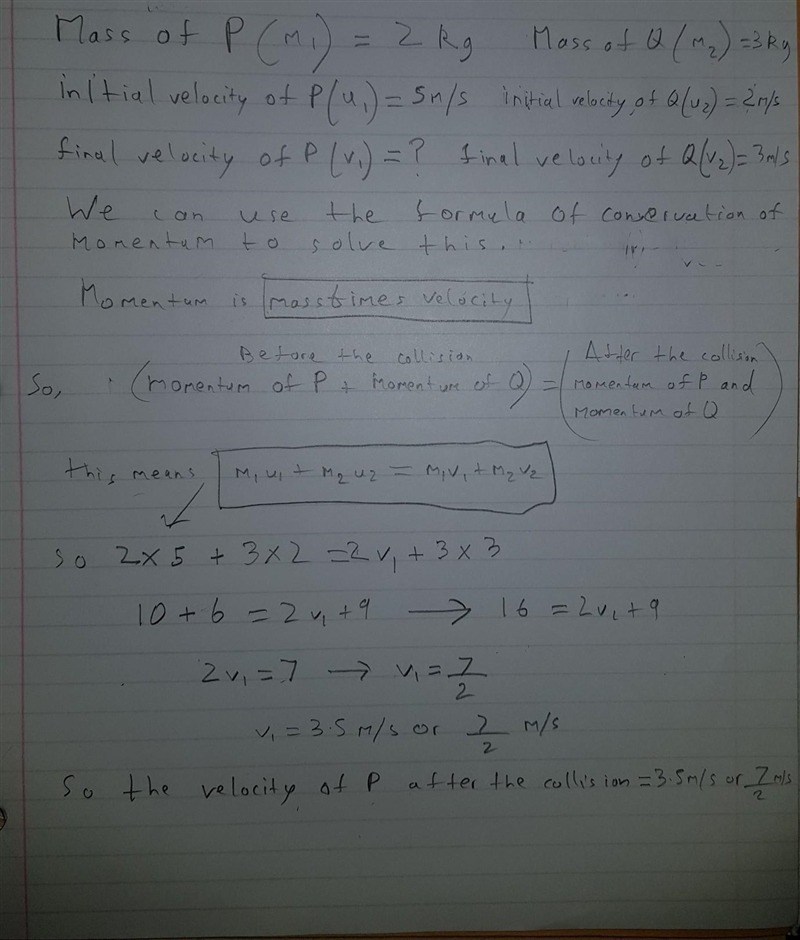 Mass of P (m₁) = 2 kg Mass of Q (m₂) = 3kg
initial velocity of P(u₁) = 5m/s initial velocity of Q(u₂) = 2m/s
final velocity of P(v₁) = ? final velocity of Q(v₂) = 3m/s
We can use the formula of conservation of
momentum to solve this.
Momentum is mass times velocity
Before the collision
After the collision
So, (momentum of P + Momentum of Q) = (momentum of P and
momentum of Q)
this means m₁u₁ + m₂u₂ = m₁v₁ + m₂v₂
so 2 × 5 + 3 × 2 = 2v₁ + 3 × 3
10 + 6 = 2v₁ + 9 → 16 = 2v₁ + 9
2v₁ = 7 → v₁ = 7/2
v₁ = 3.5 m/s or 7/2 m/s
So the velocity of P after the collision = 3.5m/s or 7/2 m/s